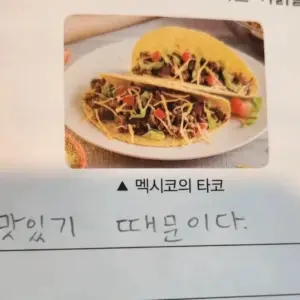 ▲ 멕시코의 타코
맛있기 때문이다.